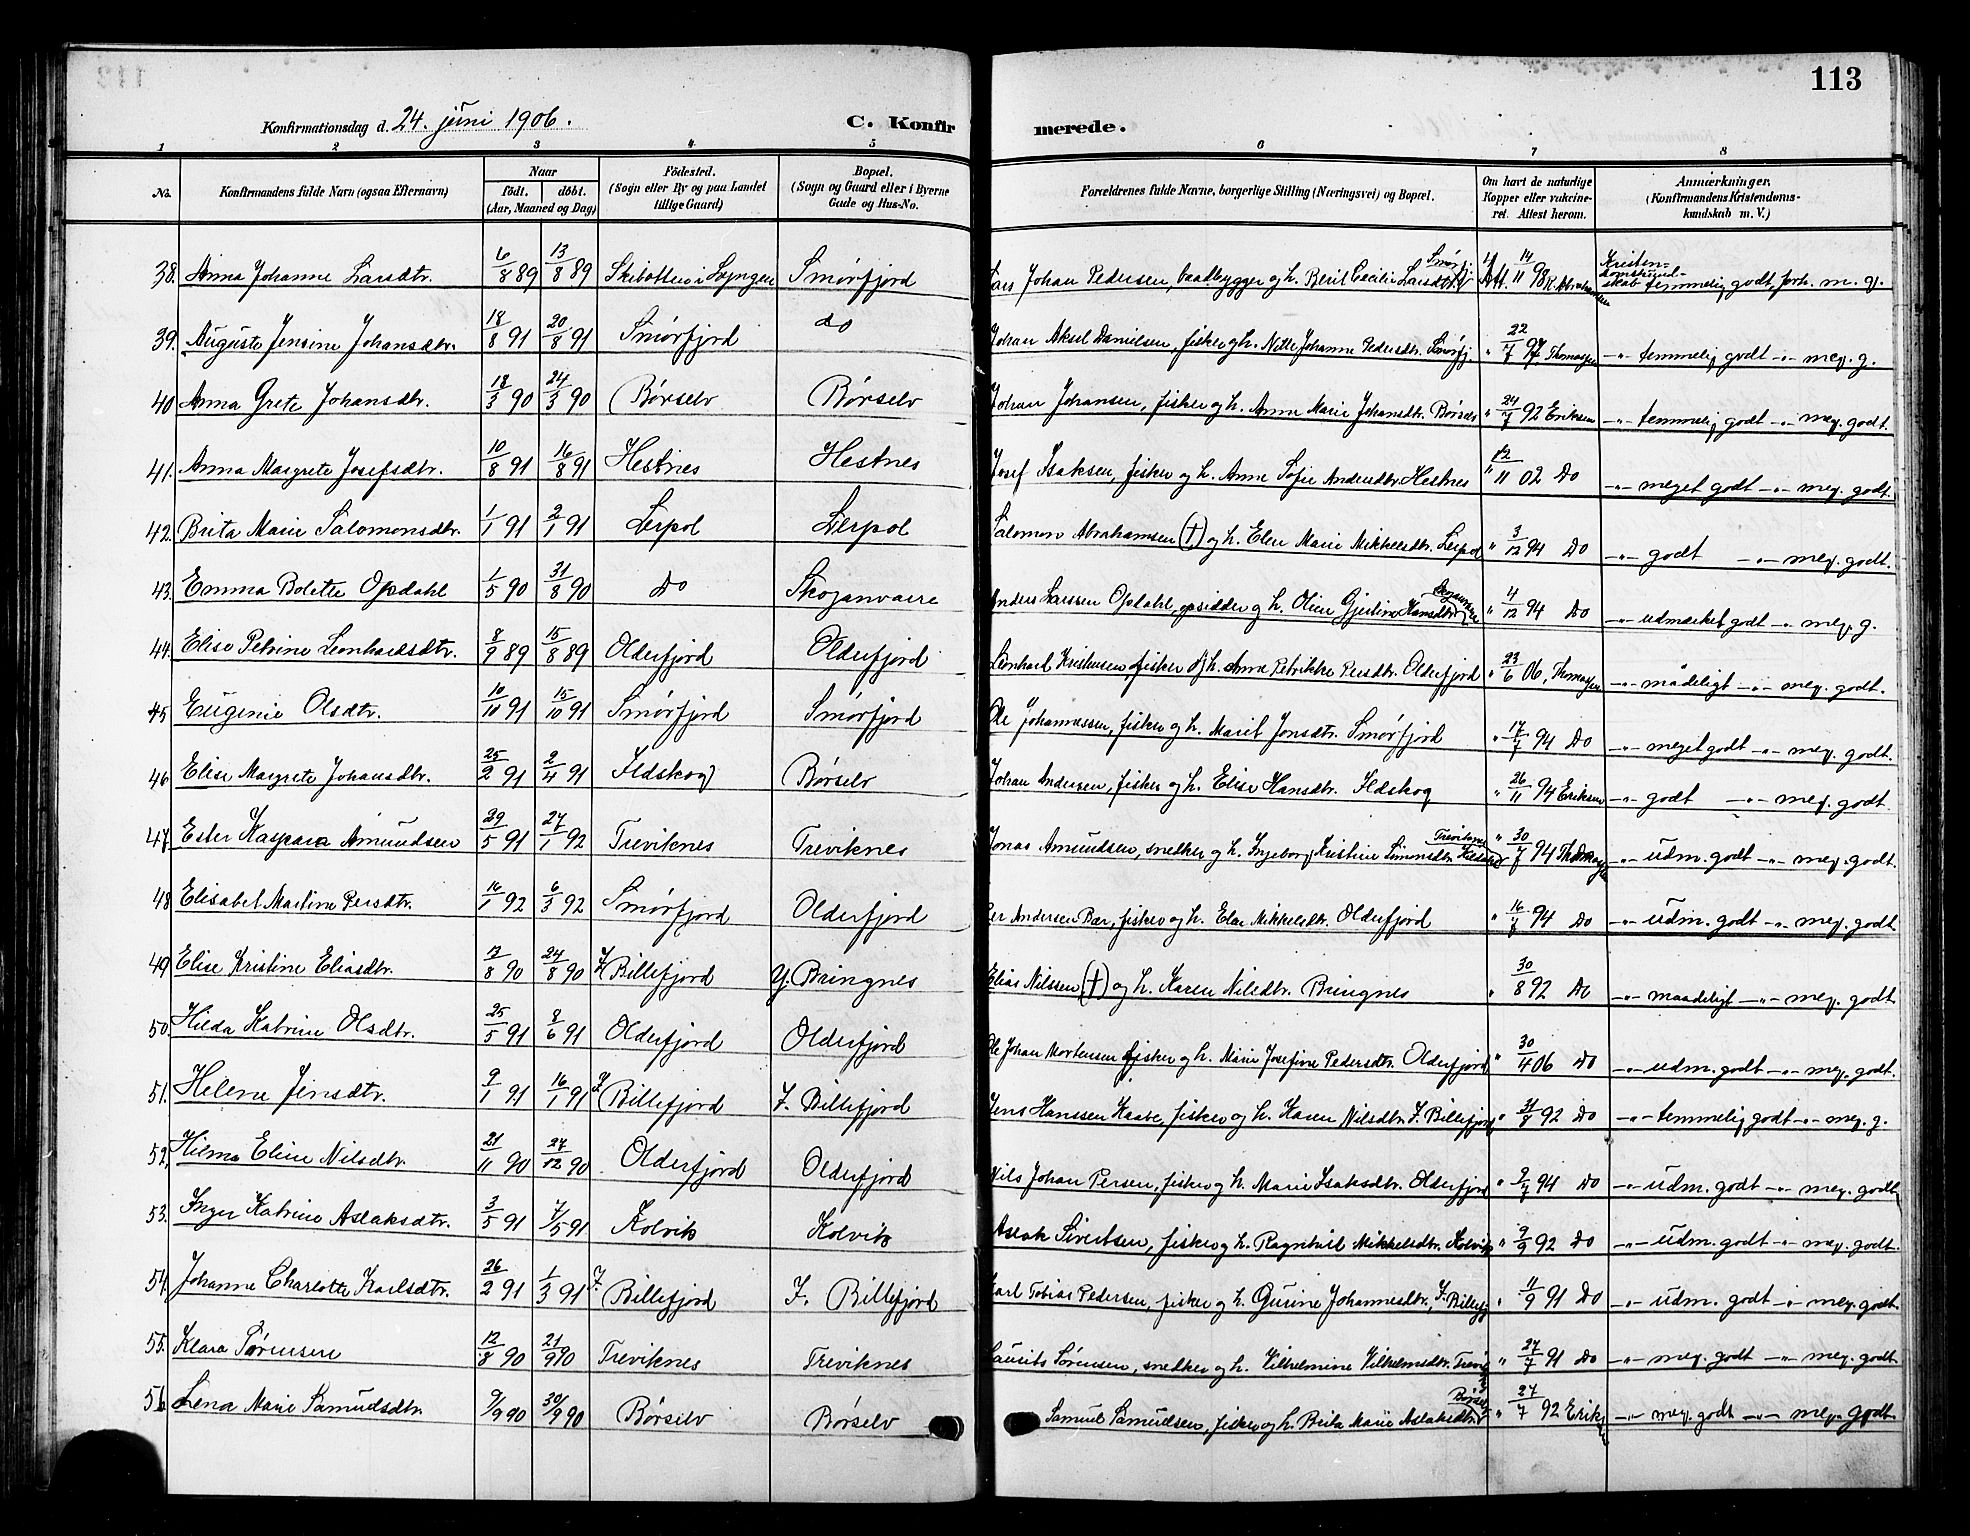 113
Konfirmationsdag d. 24. juni 1906.
C. Konfirmerede.
1 2 3 4 5 6 7 8
No. Konfirmandens fulde Navn (ogsaa Efternavn) Naar födt. döbt. (Aar, Maaned og Dag) Födested. (Sogn eller By og paa Landet tillige Gaard) Bopæl. (Sogn og Gaard eller i Byerne Gade og Hus-No. Forældrenes fulde Navne, borgerlige Stilling (Næringsvei) og Bopæl. Om havt de naturlige Kopper eller vakcineret. Attest herom. Anmærkninger. (Konfirmandens Kristendomskundskab m. V.)
38. Anna Johanne Larsdtr. 6/8 89 13/8 89 Skibotten i Lyngen Smørfjord Lars Johan Pedersen, baadbygger og h. Berit Cecilie Larsdtr. Smørfj. Att. 14/11 98 K. Abrahamsen Kristendomskundskab temmelig godt, forh. m. g.
39. Auguste Jensine Johansdtr. 18/8 91 20/8 91 Smørfjord do Johan Aksel Danielsen, fisker og h. Nille Johanne Pedersdtr. Smørfj. " 22/7 97 Thomassen -"- temmelig godt -"- meg. g.
40 Anna Grete Johansdtr. 18/3 90 24/3 90 Børselv Børselv Johan Johansen, fisker og h. Anne Marie Johansdtr. Børselv " 24/7 92 Eriksen -"- temmelig godt -"- meg. godt.
41. Anna Margrete Josefsdtr. 10/8 91 16/8 91 Hestnes Hestnes Josef Isaksen, fisker og h. Anne Sofie Andersdtr. Hestnes " 12/11 02 Do -"- meget godt -"- meg. godt.
42. Brita Marie Salomonsdtr. 1/1 91 2/1 91 Lerpol Lerpol Salomon Abrahamsen (†) og h. Elen Marie Mikkelsdtr. Lerpol " 3/12 94 Do -"- godt -"- meg. godt.
43. Emma Bolette Opdahl 1/5 90 31/8 90 Do Skoganvarre Anders Larssen Opdahl, opsidder og h. Oline Gjertine Hansdtr. Skoganvarre " 4/12 94 Do -"- udmærket godt -"- meg. g.
44. Elise Petrine Leonhardsdtr. 8/9 89 15/8 89 Olderfjord Olderfjord Leonhard Kristensen, fisker og h. Anne Petrikke Persdtr. Olderfjord " 23/6 06, Thomassen -"- mådeligt -"- meg. godt.
45 Eugenie Olsdtr. 10/10 91 15/10 91 Smørfjord Smørfjord Ole Johannessen, fisker og h. Marit Jonsdtr. Smørfjord " 17/7 94 Do -"- meget godt -"- meg. godt.
46 Elise Margrete Johansdtr. 25/2 91 2/4 91 Ildskog Børselv Johan Andersen, fisker og h. Elise Hansdtr. Ildskog " 26/11 94 Eriksen -"- godt -"- meg. godt.
47. Ester Kaspara Amundsen 29/5 91 27/1 92 Treviknes Treviknes Jonas Amundsen, snedker og h. Ingeborg Kristine Simonsdtr. Treviknes " 30/7 94 Thomassen -"- udm. godt -"- meg. godt.
48 Elisabet Martine Persdtr. 16/1 92 6/3 92 Smørfjord Olderfjord Per Andersen Bær, fisker og h. Elen Mikkelsdtr. Olderfjord " 16/7 94 Do -"- udm. godt -"- meg. godt.
49 Elise Kristine Eliasdtr. 12/8 90 24/8 90 Y. Billefjord Y. Bringnes Elias Nilssen (†) og h. Karen Nilsdtr. Bringnes " 30/8 92 Do -"- maadeligt -"- meg. godt
50. Hilda Katrine Olsdtr. 25/5 91 8/6 91 Olderfjord Olderfjord Ole Johan Mortensen fisker og h. Marie Josefine Pedersdtr. Olderfjord " 30/4 06 Do -"- udm. godt -"- meg. godt.
51. Helene Jensdtr. 9/1 91 16/1 91 I. Billefjord I. Billefjord Jens Hanssen Kaave, fisker og h. Karen Nilsdtr. I. Billefjord " 31/8 92 Do -"- temmelig godt -"- meg. g.
52, Hilma Eline Nilsdtr. 21/11 90 27/12 90 Olderfjord Olderfjord Nils Johan Persen, fisker og h. Marie Isaksdtr. Olderfjord " 9/7 94 Do -"- udm. godt -"- meg. godt
53. Inger Katrine Aslaksdtr. 3/5 91 7/5 91 Kolvik Kolvik Aslak Sivertsen, fisker og h. Ragnhild Mikkelsdtr. Kolvik " 9/9 92 Do -"- udm. godt -"- meg. godt.
54. Johanne Charlotte Karlsdtr. 26/2 91 1/3 91 I. Billefjord I. Billefjord Karl Tobias Pedersen, fisker og h. Gurine Johannesdtr., I. Billefj. " 11/9 91 Do -"- udm. godt -"- meg. godt.
55. Klara Sørensen 12/8 90 21/9 90 Treviknes Treviknes Laurits Sørensen, snedker og h. Vilhelmine Vilhelmsdtr. Trevikn. " 27/7 91 Do -"- meg. godt -"- meg. godt
56 Lena Marie Samuelsdtr. 9/9 90 30/9 90 Børselv Børselv Samuel Samuelsen, fisker og h. Brita Marie Aslaksdtr. Børselv " 27/7 92 Eriksen -"- meg. godt -"- meg. godt